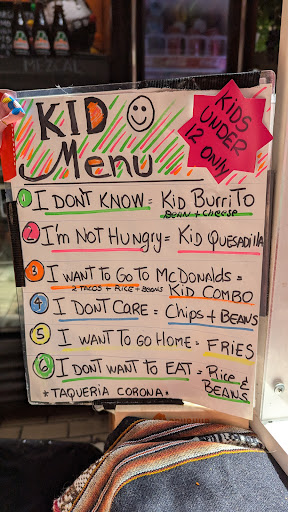 MEZCAL
KID
Menu
KIDS
UNDER
12 ONLY
1 I DON'T KNOW = KID BURRITO
BEAN + CHEESE
2 I'm NOT HUNGRY = KID QUESADILLA
3 I WANT TO GO TO McDONALDS =
2 TACOS + RICE + BEANS KID COMBO
4 I DONT CARE = CHIPS + BEANS
5 I WANT TO GO HOME = FRIES
6 I DONT WANT TO EAT = Rice &
BEANS
* TAQUERIA CORONA *